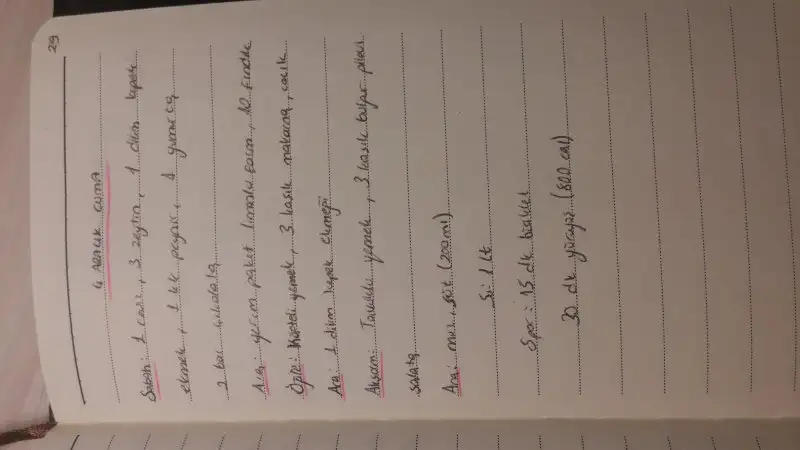 29
4 Aralık Cuma
Sabah: 1 ceviz, 3 zeytin, 1 dilim kepek
ekmek, 1 lık peynir, 1 yumurta
2 bar çikolata
Ara: yarım paket limonlu, 10 fındık
Öğle: yemek, 3 kaşık makarna, cacık
Ara: 1 dilim kepek ekmeği
Akşam: Tavuklu yemek, 3 kaşık bulgur pilavı
salata
Ara: muz, süt (200ml)
Su: 1 lt
Spor: 15 dk bisiklet
30 dk yürüyüş (800 cal)